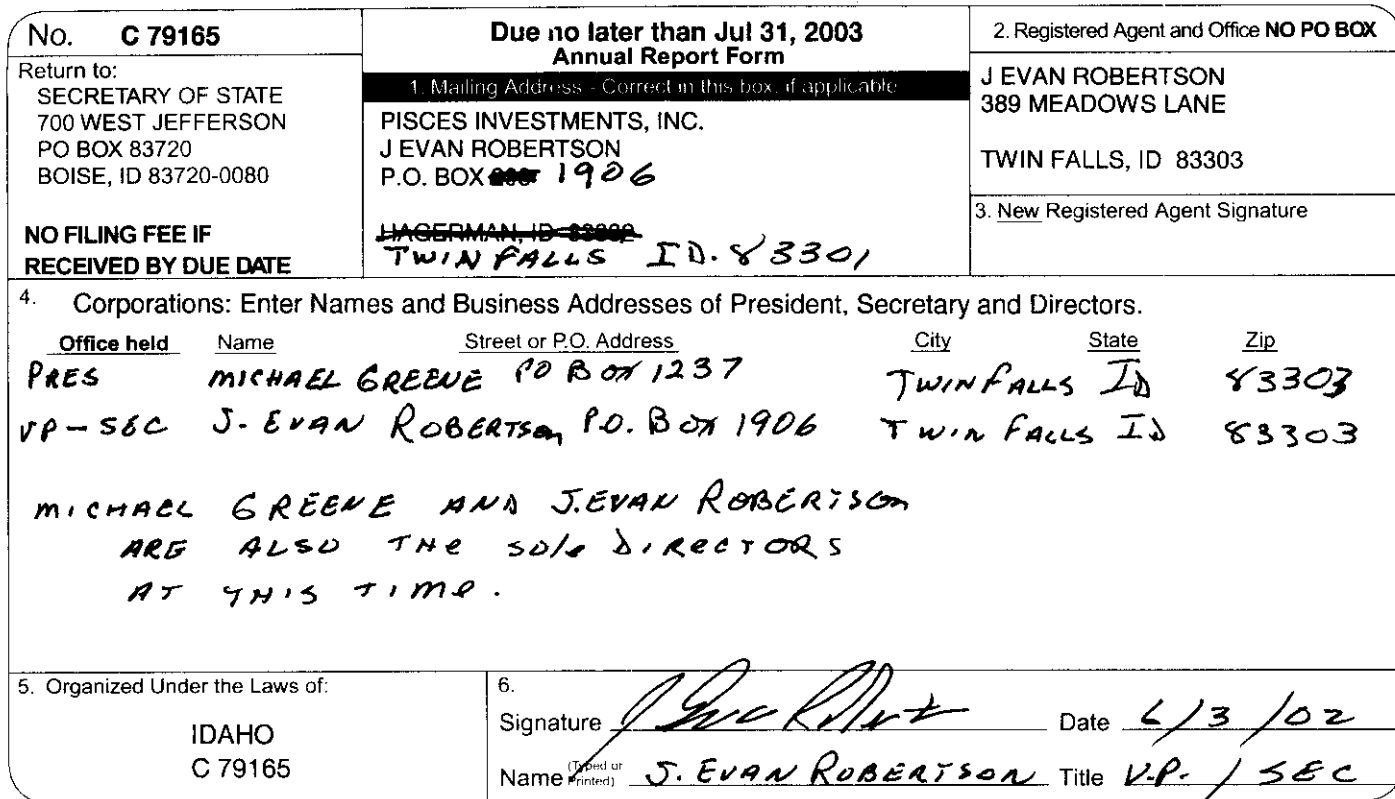 No. C 79165
Return to:
SECRETARY OF STATE
700 WEST JEFFERSON
PO BOX 83720
BOISE, ID 83720-0080
NO FILING FEE IF
RECEIVED BY DUE DATE
Due no later than Jul 31, 2003
Annual Report Form
1. Mailing Address - Correct in this box, if applicable
PISCES INVESTMENTS, INC.
J EVAN ROBERTSON
P.O. BOX 1906
HAGERMAN, ID
TWIN FALLS ID. 83301
2. Registered Agent and Office NO PO BOX
J EVAN ROBERTSON
389 MEADOWS LANE
TWIN FALLS, ID 83303
3. New Registered Agent Signature
4. Corporations: Enter Names and Business Addresses of President, Secretary and Directors.
Office held Name Street or P.O. Address City State Zip
PRES MICHAEL GREENE PO BOX 1237 TWIN FALLS ID 83303
VP-SEC J. EVAN ROBERTSON P.O. BOX 1906 TWIN FALLS ID 83303
MICHAEL GREENE AND J.EVAN ROBERTSON
ARE ALSO THE sole DIRECTORS
AT THIS TIME.
5. Organized Under the Laws of:
IDAHO
C 79165
6.
Signature Date 6/3/02
Name (Typed or Printed) J. EVAN ROBERTSON Title V.P. / SEC